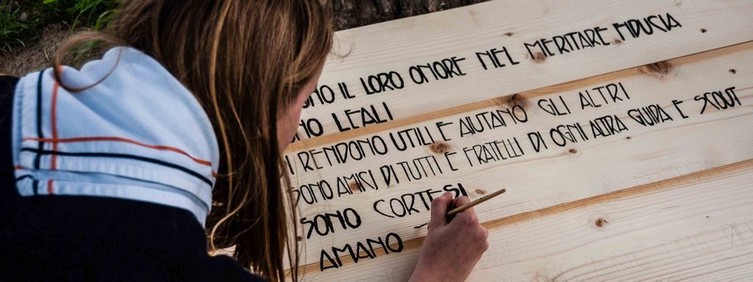 ONO IL LORO ONORE NEL MERITARE FIDUCIA
ONO LEALI
I RENDONO UTILI E AIUTANO GLI ALTRI
SONO AMICI DI TUTTI E FRATELLI DI OGNI ALTRA GUIDA E SCOUT
SONO CORTESI
AMANO